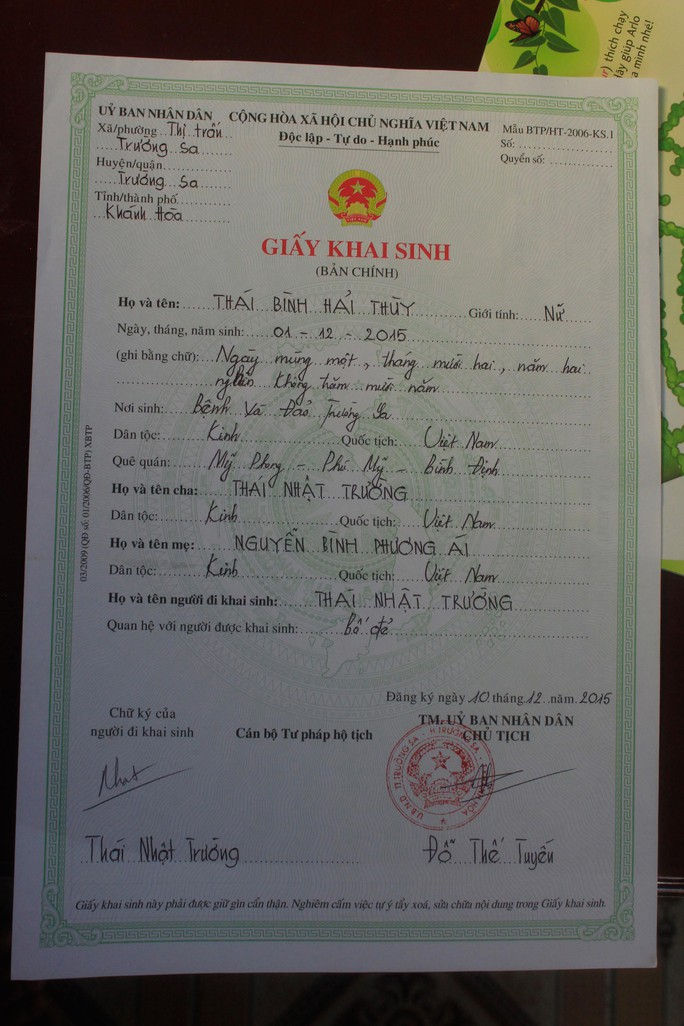 thích chạy
đây giúp Arlo
a mình nhé!
ỦY BAN NHÂN DÂN
Xã/phường Thị trấn
Trường Sa
Huyện/quận
Trường Sa
Tỉnh/thành phố
Khánh Hòa
CỘNG HÒA XÃ HỘI CHỦ NGHĨA VIỆT NAM
Độc lập - Tự do - Hạnh phúc
Mẫu BTP/HT-2006-KS.1
Số:
Quyển số:
GIẤY KHAI SINH
(BẢN CHÍNH)
Họ và tên: THÁI BÌNH HẢI THÙY Giới tính: Nữ
Ngày, tháng, năm sinh: 01 - 12 - 2015
(ghi bằng chữ): Ngày mùng một, tháng mười hai, năm hai
nghìn không trăm mười năm
Nơi sinh: Bệnh Xá Đảo Trường Sa
Dân tộc: Kinh Quốc tịch: Việt Nam
Quê quán: Mỹ Phong - Phù Mỹ - Bình Định
Họ và tên cha: THÁI NHẬT TRƯỜNG
Dân tộc: Kinh Quốc tịch: Việt Nam
Họ và tên mẹ: NGUYỄN BÌNH PHƯƠNG ÁI
Dân tộc: Kinh Quốc tịch: Việt Nam
Họ và tên người đi khai sinh: THÁI NHẬT TRƯỜNG
Quan hệ với người được khai sinh: bố đẻ
03/2009 (QĐ số: 01/2006/QĐ-BTP) XBTP
Đăng ký ngày 10 tháng 12 năm 2015
Chữ ký của
người đi khai sinh
Cán bộ Tư pháp hộ tịch
TM. ỦY BAN NHÂN DÂN
CHỦ TỊCH
U.B.N.D TT.TRƯỜNG SA - H.TRƯỜNG SA
Thái Nhật Trường
Đỗ Thế Tuyến
Giấy khai sinh này phải được giữ gìn cẩn thận. Nghiêm cấm việc tự ý tẩy xoá, sửa chữa nội dung trong Giấy khai sinh.